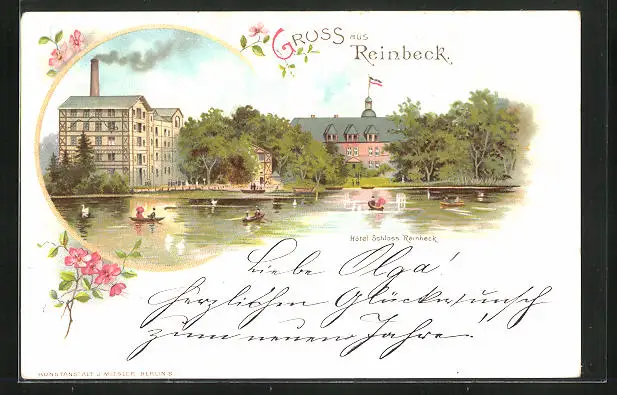 GRUSS AUS
Reinbeck.
Hôtel Schloss Reinbeck
Liebe Olga!
Herzlichen Glückwunsch
zum neuen Jahre!
KUNSTANSTALT J. MIESLER, BERLIN S.